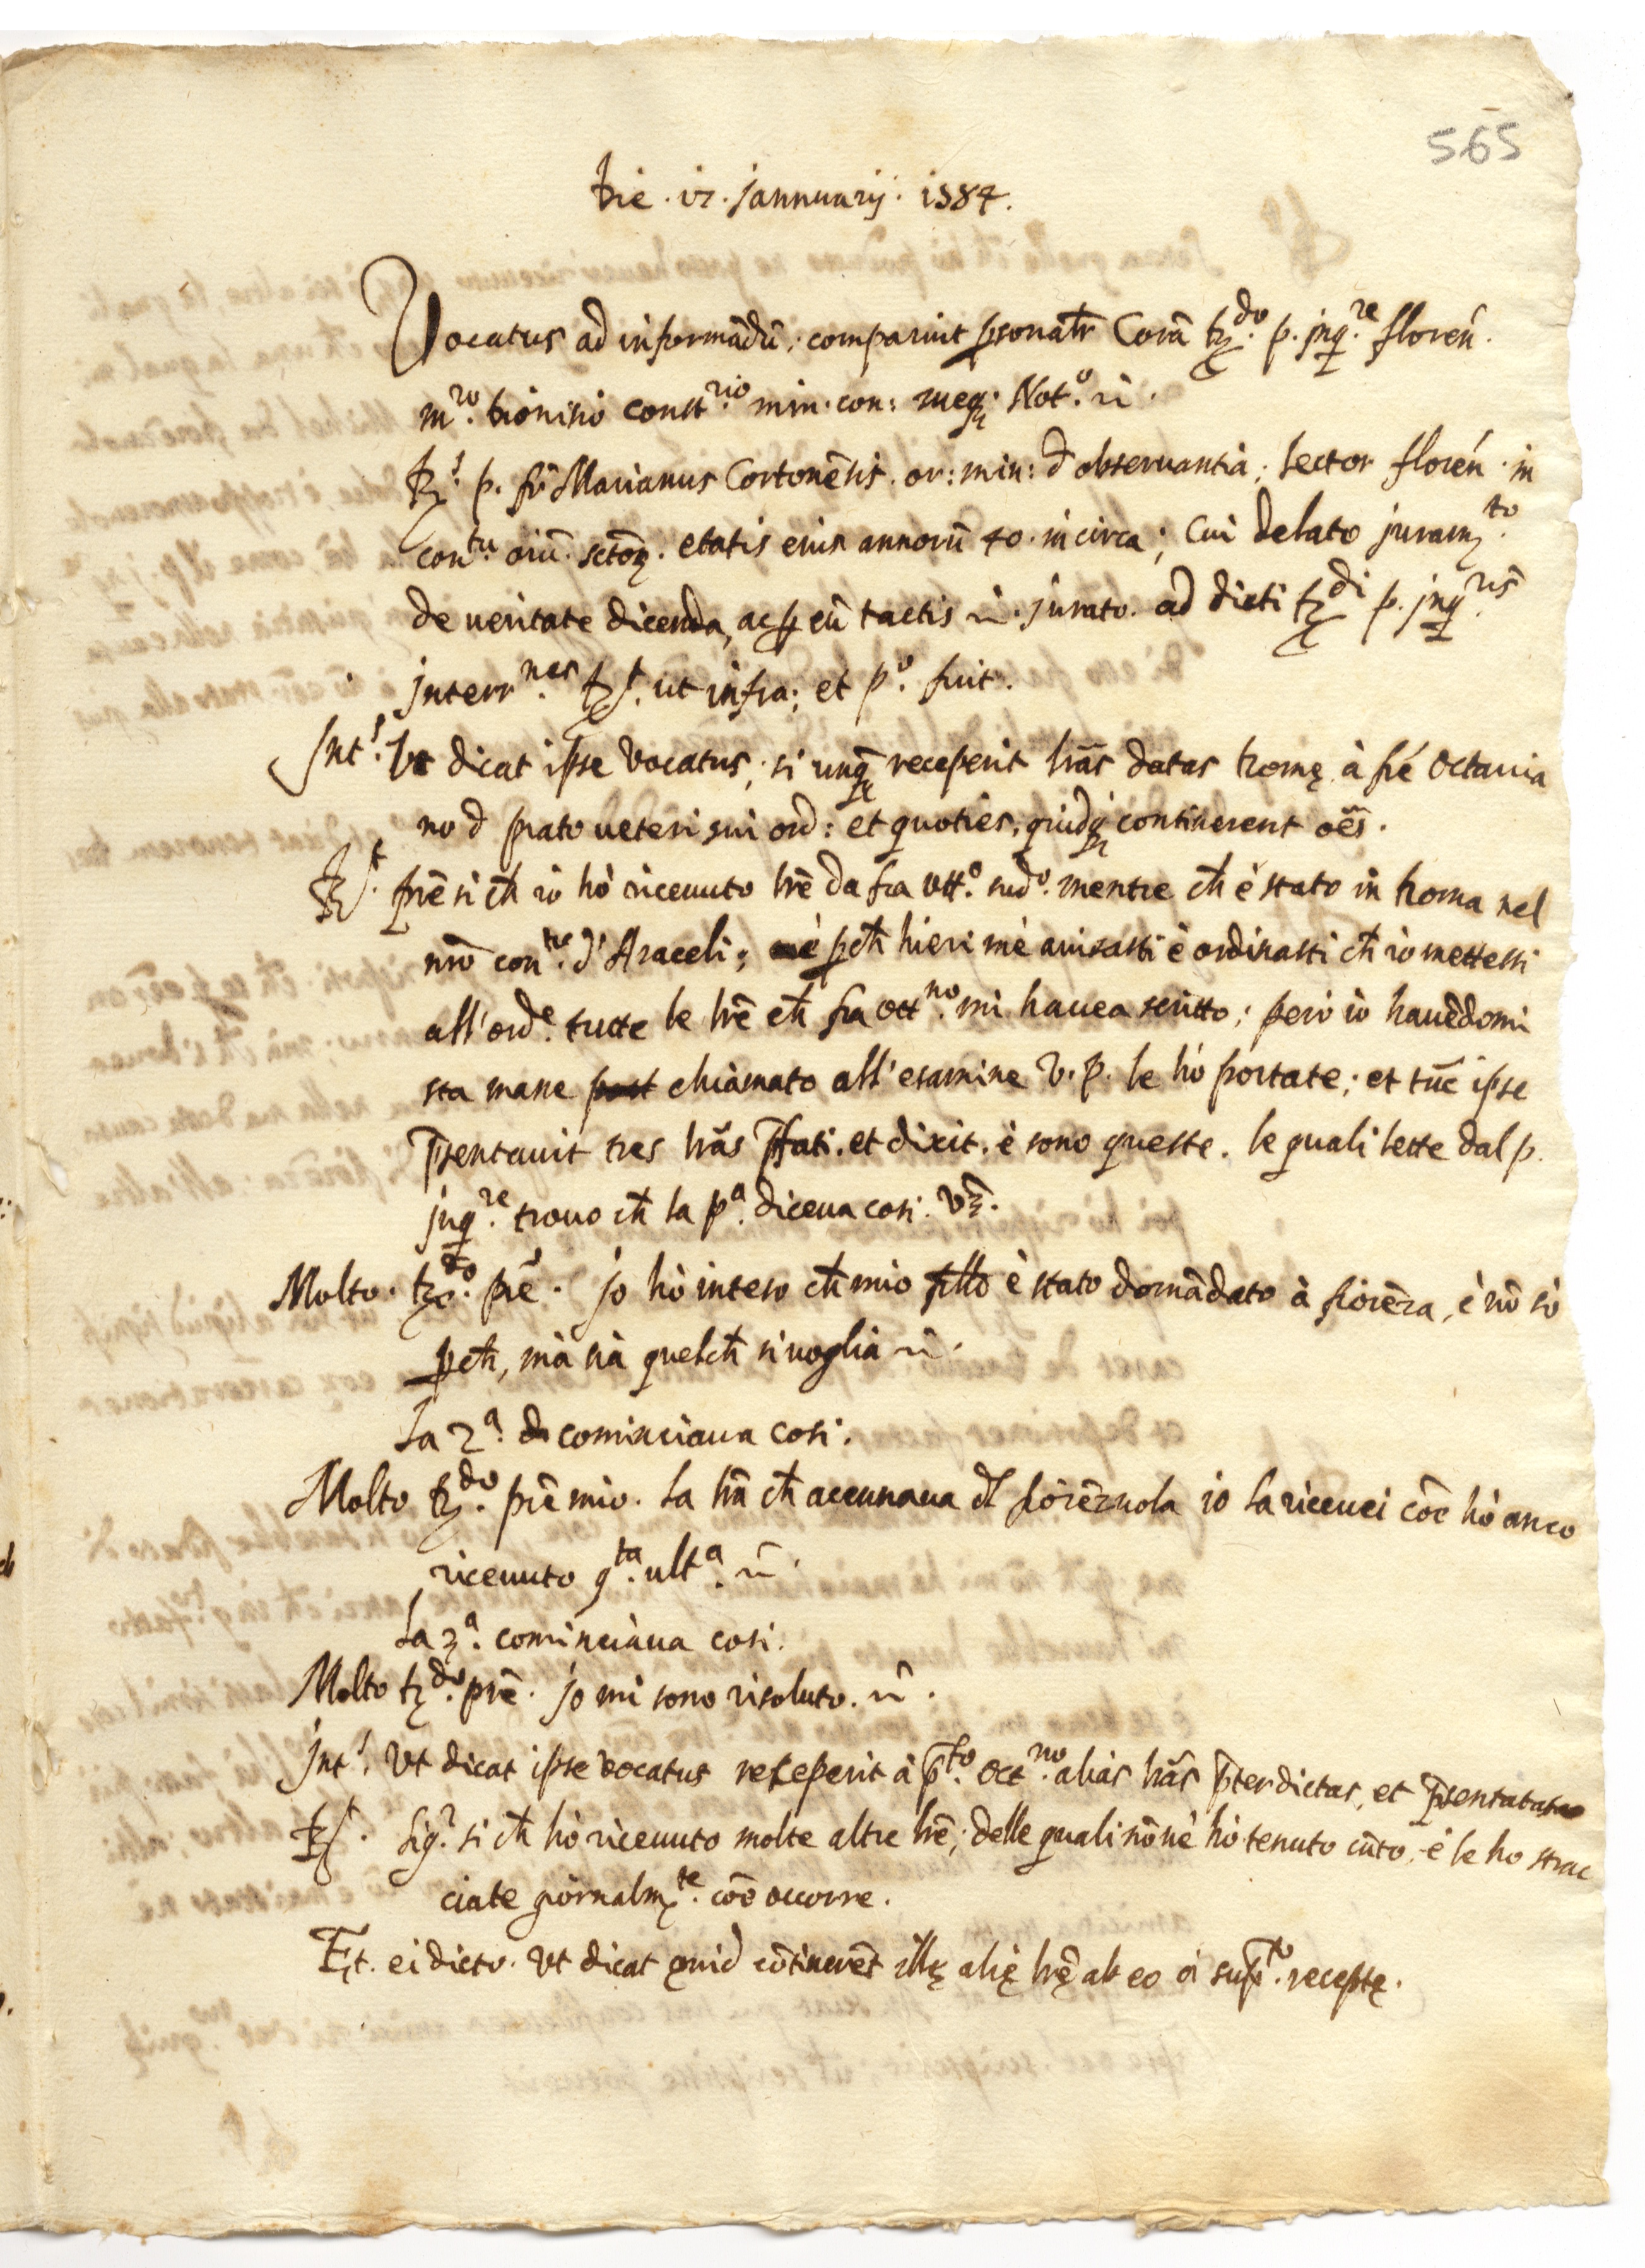 565
Die . 17 . Jannuarij . 1584.
Vocatus ad informādū, comparuit p̱sonałr Corā R.do p. Jnq.re florēn.
m.ro Dionisio Const.rio min. con: meq; Not.o n̄.
R.s p. fr̄ Marianus Cortonēsis. or: min: d' obseruantia, Lector florén. in
con.tu oiū. sctōrꝫ. etatis eius annorū 40. in circa; Cui delato juram.to
de ueritate dicenda, ac ꝑ eū tactis n̄. jurato. ad dicti R.di p. jnq.ris
jnterr.nes R.t. ut infra; et p.o fuit.
Jnt.s Vt dicat ipse Vocatus, si unq̄ receperit lrās datas Romę à fr̄e Octauia
no d' prato ueteri sui ord: et quoties, quidq; continerent oēs.
R.t. pr̄e si ch̄ io hò riceuuto lr̄e da fra Ott.o sud.o mentre ch̄ è stato in Roma nel
nr̄o con.to d'Araceli; è ꝑch̄ hieri mè auisasti è ordinasti ch̄ io mettessi
all'ord.e tutte le lr̄e ch̄ fra Ott.no mi hauea scritto; però io hauēdomi
sta mane chiamato all'esamine V. P. le hò portate; et tūc ipse
p̄sentauit tres lrās p̄fati. et dixit. è sono queste. le quali lette dal p.
jnq.re trouo ch̄ la p.a diceua cosi. Vꝫ.
Molto. R.do pr̄e. Jo hò inteso ch̄ mio fr̄llo è stato domādato à fiorēza, è nō sò
ꝑch̄, mà sià quelch̄ si uoglia n̄.
La 2.a cominciaua cosi.
Molto R.do pr̄e mio. La lr̄a ch̄ accennaua d̄l fiorēzuola io la riceuei cōe hò anco
riceuuto q.ta ult.a n̄.
La 3.a cominciaua cosi.
Molto R.do pr̄e. Jo mi sono risoluto. n̄.
Jnt.s Vt dicat ipse vocatus receperit à p̄.to Oct.no alias lrās p̄ter dictas, et p̄sentatas
R.t. Sig.r si ch̄ hò riceuuto molte altre lr̄e; delle quali nō nè hò tenuto cūto, è le ho strac
ciate giornalm.te cōe occorre.
Et. ei dicto. Vt dicat quid cōtinerēt illę alię lr̄ę ab eo à sup.to receptę.